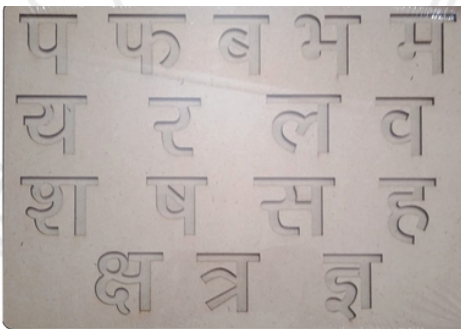 प फ ब भ म
य र ल व
श ष स ह
क्ष त्र ज्ञ